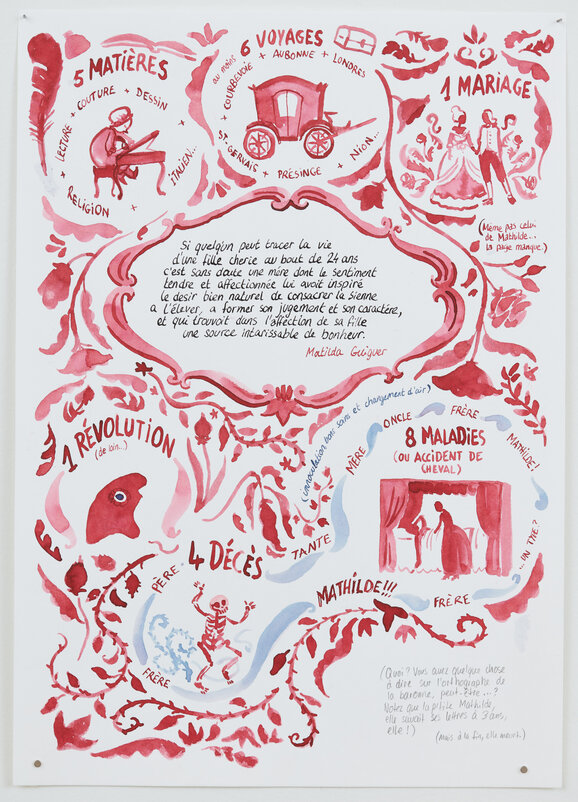 5 MATIÈRES
LECTURE + COUTURE + DESSIN
+ RELIGION + ITALIEN...
6 VOYAGES
au moins
+ COURBEVOIE + AUBONNE + LONDRES
ST-GERVAIS + PRÉSINGE + NION...
1 MARIAGE
(Même pas celui
de Mathilde...
la page manque.)
Si quelqun peut tracer la vie
d'une fille cherie au bout de 24 ans
c'est sans doute une mère dont le sentiment
tendre et affectionnée lui avoit inspiré
le desir bien naturel de consacrer la sienne
a l'élever, a former son jugement et son caractère,
et qui trouvoit dans l'affection de sa fille
une source intarissable de bonheur.
Matilda Guiguer
1 RÉVOLUTION
(de loin...)
(innoculation bons soins et changement d'air)
8 MALADIES
(OU ACCIDENT DE
CHEVAL)
TANTE
MÈRE
ONCLE
FRÈRE
MATHILDE!
... UN TYPE?
FRÈRE
4 DÉCÈS
PÈRE
FRÈRE
MATHILDE!!!
(Quoi? Vous avez quelque chose
à dire sur l'orthographe de
la baronne, peut-être...?
Notez que la p'tite Mathilde,
elle savait ses lettres à 3 ans,
elle!)
(Mais à la fin, elle meurt.)